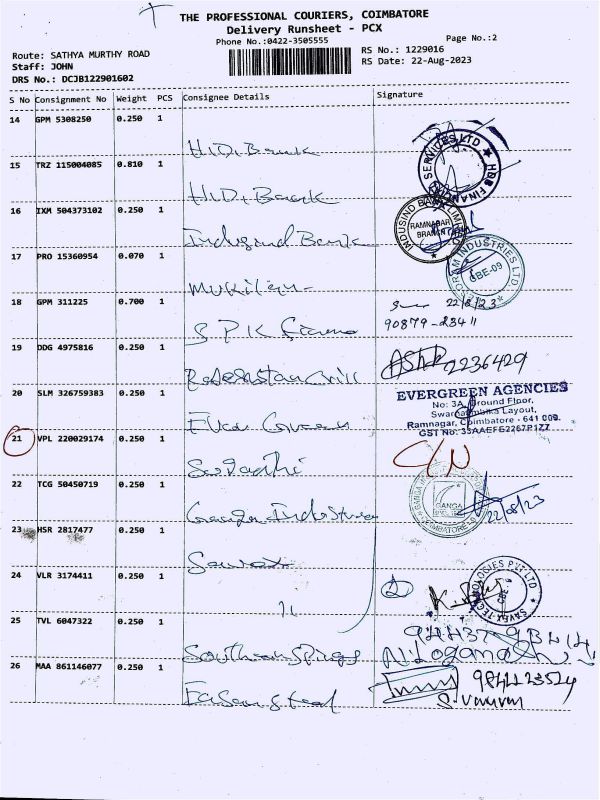 THE PROFESSIONAL COURIERS, COIMBATORE
Delivery Runsheet - PCX
Phone No.:0422-3505555
Page No.:2
Route: SATHYA MURTHY ROAD
RS No.: 1229016
Staff: JOHN
RS Date: 22-Aug-2023
DRS No.: DCJB122901602
S No Consignment No Weight PCS Consignee Details Signature
14 GPM 5308250 0.250 1
SERVICES LTD ★ HDB FINAN
15 TRZ 115004085 0.810 1
16 IXM 504373102 0.250 1
Indusind Bank
INDUSIND BANK LIMITED
RAMNAGAR
BRANCH
17 PRO 15360954 0.070 1
INDUSTRIES LTD.
CBE-09
Mukilan
18 GPM 311225 0.700 1
22/8/23
90879-23411
SPK
19 DDG 4975816 0.250 1
2236429
20 SLM 326759383 0.250 1
EVERGREEN AGENCIES
No: 3A, Ground Floor,
Swarnambika Layout,
Ramnagar, Coimbatore - 641 009.
Ever Green
21 VPL 220029174 0.250 1
C/N
22 TCG 50450719 0.250 1
GANGA
COIMBATORE-9
22/08/23
Ganga Industries
23 HSR 2817477 0.250 1
24 VLR 3174411 0.250 1
SAVEX TECHNOLOGIES PVT LTD
CBE-9
"
25 TVL 6047322 0.250 1
Southern Springs
26 MAA 861146077 0.250 1